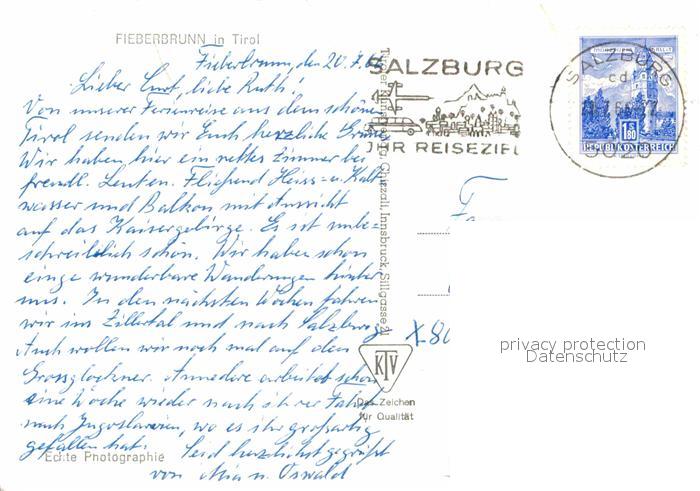 FIEBERBRUNN in Tirol
Fieberbrunn, den 20.7.66
Lieber Curt, liebe Ruth!
Von unserer Ferienreise aus dem schönen
Tirol senden wir Euch herzliche Grüße
Wir haben hier ein nettes Zimmer bei
freundl. Leuten. Fließend Heiss- u. Kalt
wasser und Balkon mit Aussicht
auf das Kaisergebirge. Es ist unbe-
schreiblich schön. Wir haben schon
einge wunderbare Wanderungen hinter
uns. In den nächsten Wochen fahren
wir ins Zillertal und nach Salzburg
Auch wollen wir noch mal auf den
Grossglockner. Annedore arbeitet schon
eine Woche wieder nach ihrer Fahrt
nach Jugoslawien, wo es ihr großartig
gefallen hat. Seid herzlichst gegrüßt
von Mia u. Oswald
Echte Photographie
Chizzali, Innsbruck, Sillgasse 21
SALZBURG
IHR REISEZIEL
SALZBURG
cd
5020
1.80
REPUBLIK ÖSTERREICH
X-80
KTV
Das Zeichen
für Qualität
privacy protection
Datenschutz